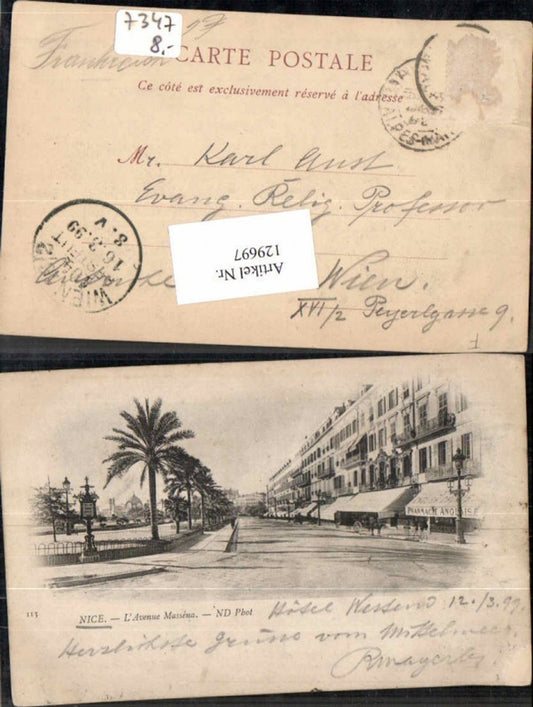 7347
8.-
CARTE POSTALE
Ce côté est exclusivement réservé à l'adresse
Mr. Karl Aust
Evang. Relig. Professor
Artikel Nr.
129697
Wien.
XVI/2 Peyerlgasse 9.
WIEN
16.3.99
8.V
F
PHARMACIE ANGLAISE
115
NICE. — L'Avenue Masséna. — ND Phot
Hôtel Westend 12./3.99.
Herzlichste Grüsse vom Mittelmeer